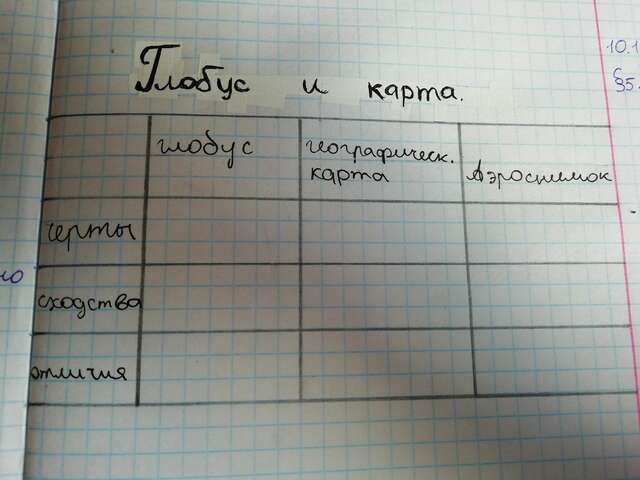 Глобус и карта.
10.1
§5.
глобус
географическ.
карта
Аэроснимок
черты
сходства
отличия